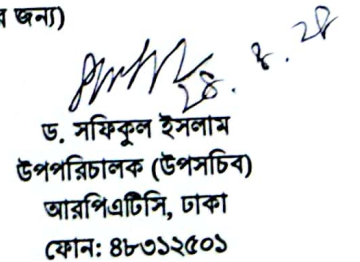 জন্য)
২৪.৪.২৪
ড. সফিকুল ইসলাম
উপপরিচালক (উপসচিব)
আরপিএটিসি, ঢাকা
ফোন: ৪৮৩১২৫০১